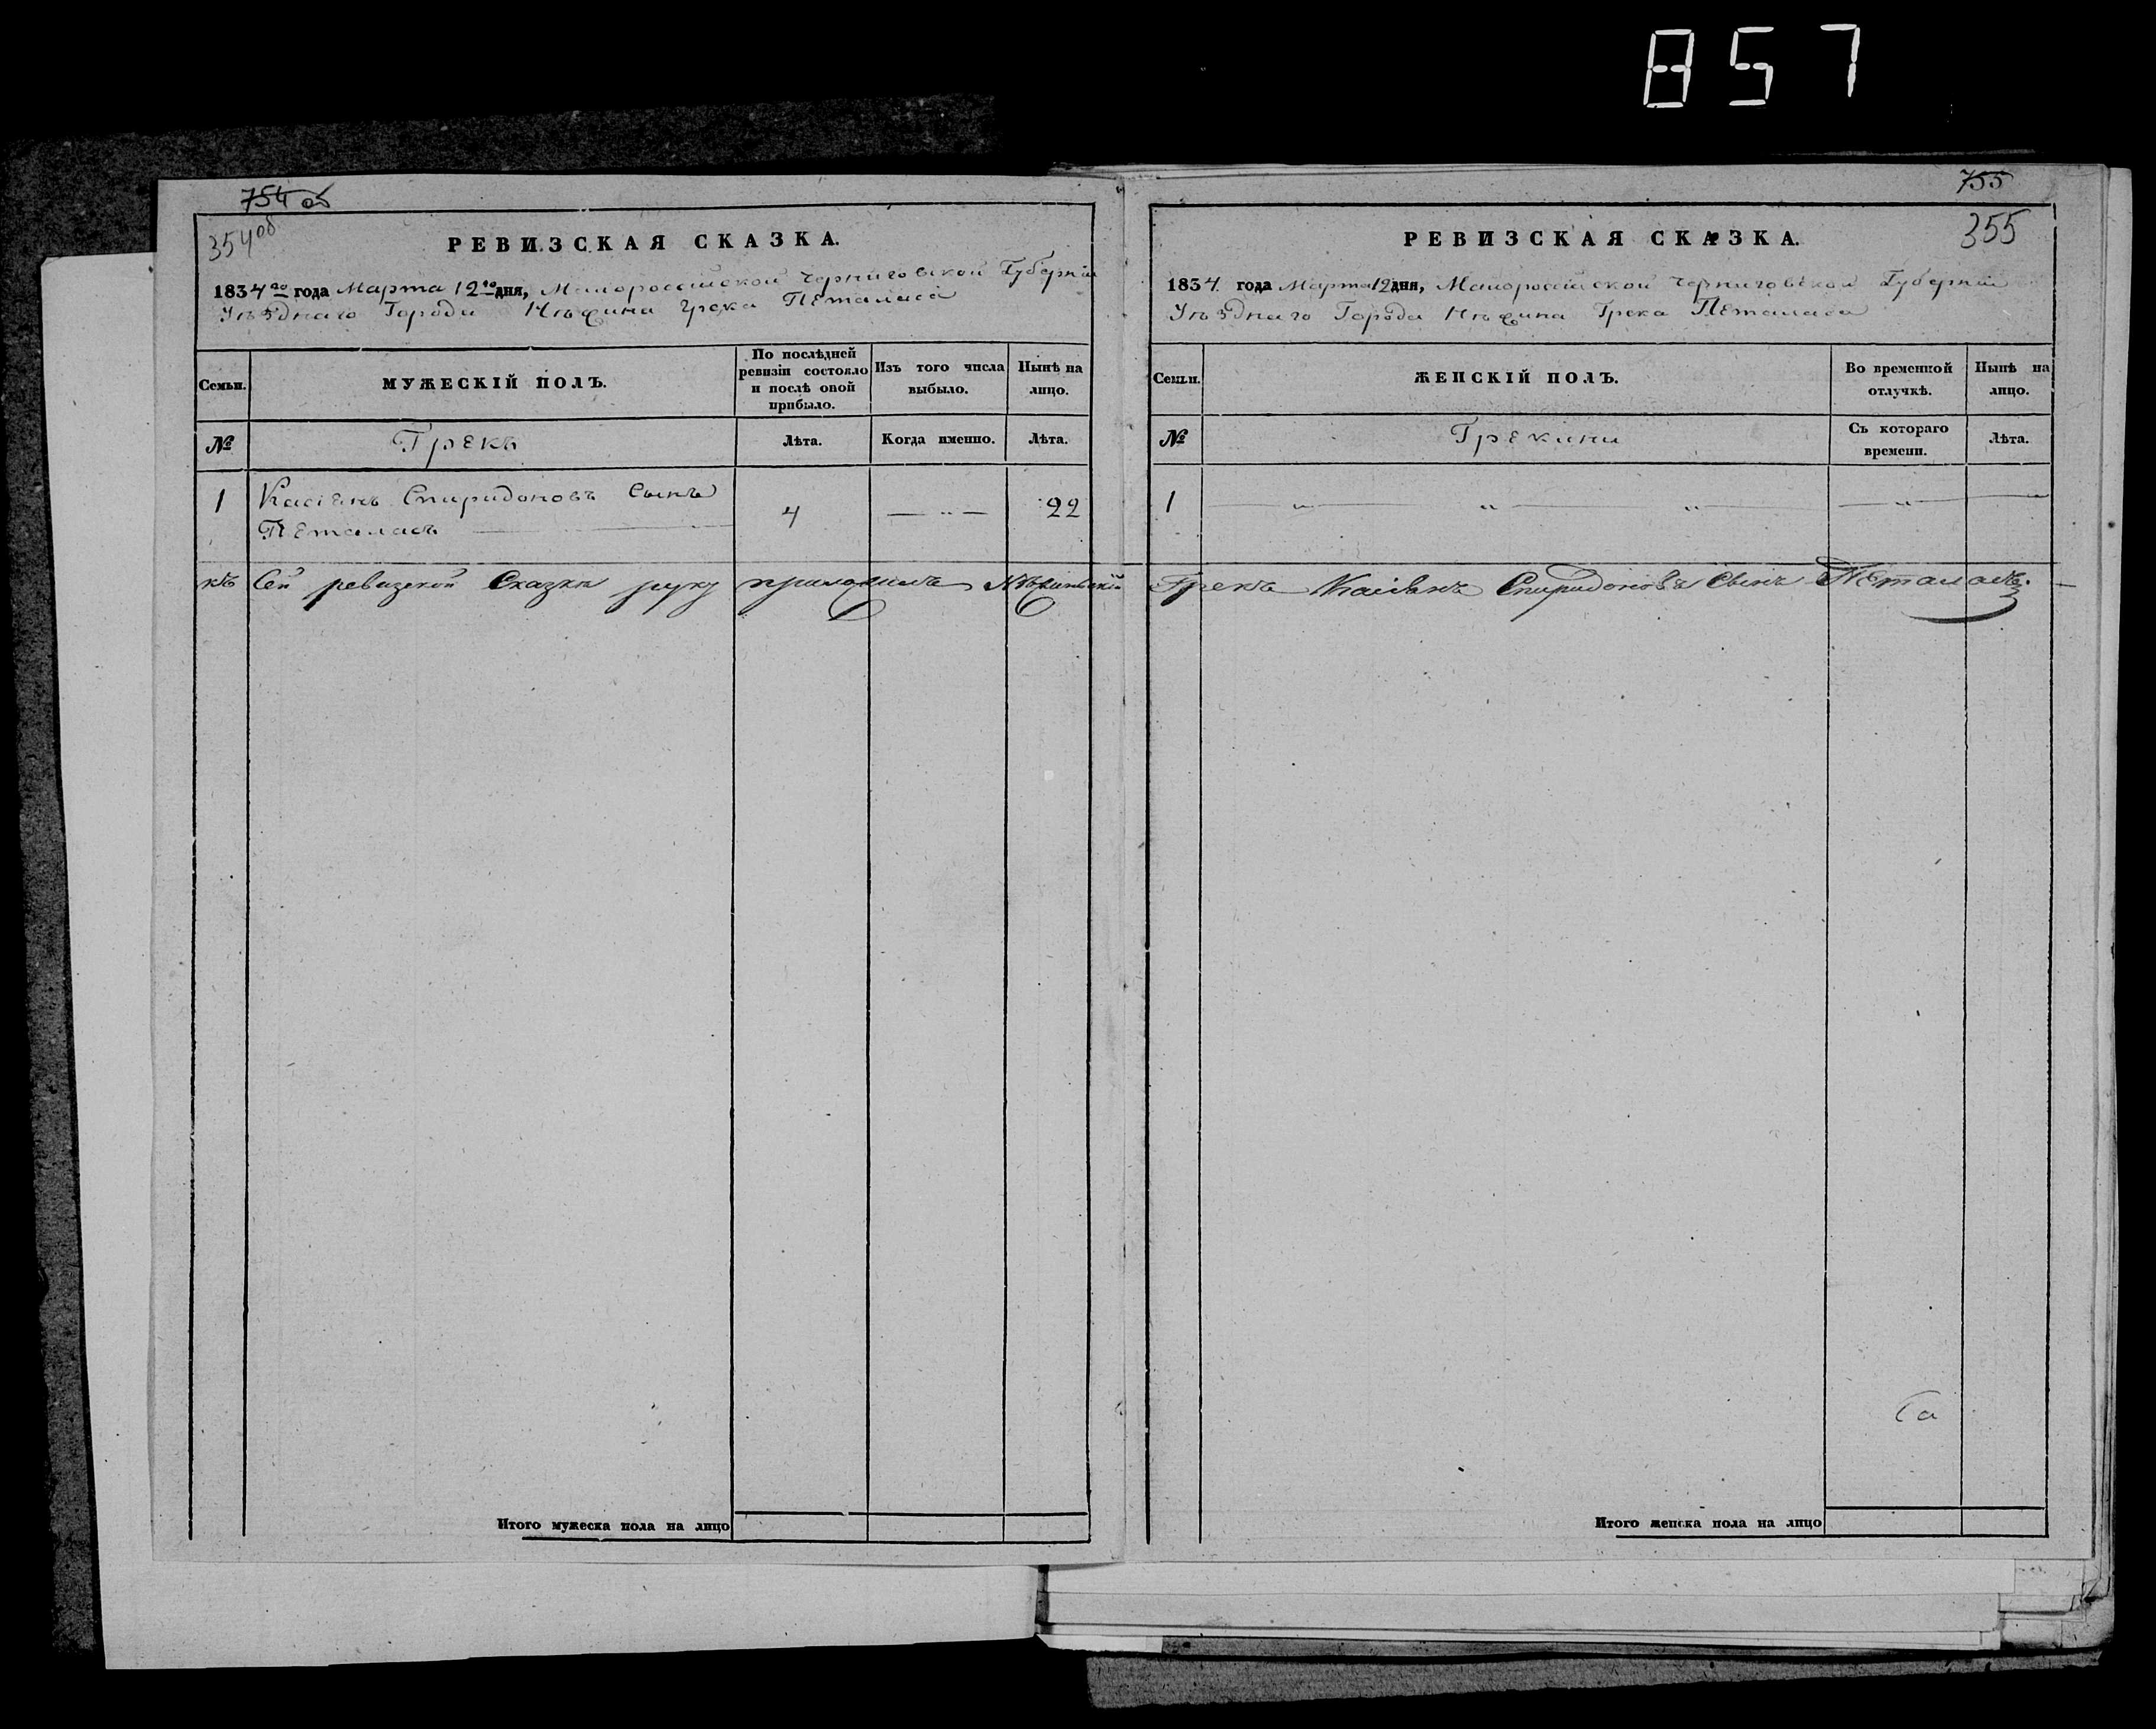 857
754 об
354 об
РЕВИЗСКАЯ СКАЗКА.
1834го года Марта 12го дня, Малороссійской Черниговской Губерніи
Уѣзднаго Города Нѣжина Грека Петаласа
Семьи.
МУЖЕСКІЙ ПОЛЪ.
По послѣдней ревизіи состояло и послѣ оной прибыло.
Изъ того числа выбыло.
Нынѣ на лицо.
№
Грекъ
Лѣта.
Когда именно.
Лѣта.
1 Касіянъ Спиридоновъ Сынъ
Петаласъ 4 — „ — 22
къ Сей ревизской Сказки руку приложилъ Нѣжинскій
Итого мужеска пола на лицо
755
355
РЕВИЗСКАЯ СКАЗКА.
1834 года Марта 12 дня, Малороссійской Черниговской Губерніи
Уѣзднаго Города Нѣжина Грека Петаласа
Семьи.
ЖЕНСКІЙ ПОЛЪ.
Во временной отлучкѣ.
Нынѣ на лицо.
№
Грекини
Съ котораго времени.
Лѣта.
1 — „ — „ — „ — „ — „
Грекъ Касіянъ Спиридоновъ Сынъ Петаласъ.
Итого женска пола на лицо